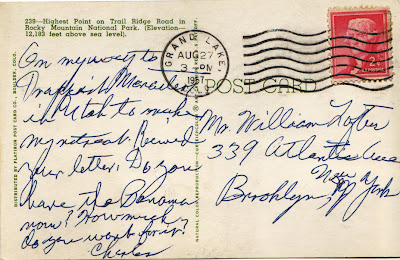 239—Highest Point on Trail Ridge Road in
Rocky Mountain National Park. (Elevation—
12,183 feet above sea level).
GRAND LAKE
AUG 27
3 PM
1957
COLO.
2¢
POST CARD
On my way to
Trappist Monastery
in Utah to make
my retreat. Received
your letter. Do you
have the Panama
now? How much
do you want for it?
Charles
Mr. William
339 Atlantic Ave
Brooklyn,
New York
DISTRIBUTED BY